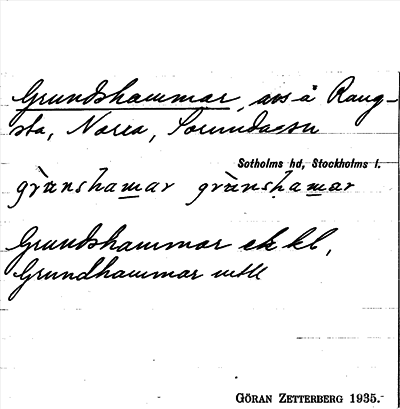 Grundshammar, avs å Rang-
sta, Norra, Sorunda sn
Sotholms hd, Stockholms l.
grùnshamar grùnshamar
Grundshammar ek kl,
Grundhammar
GÖRAN ZETTERBERG 1935.